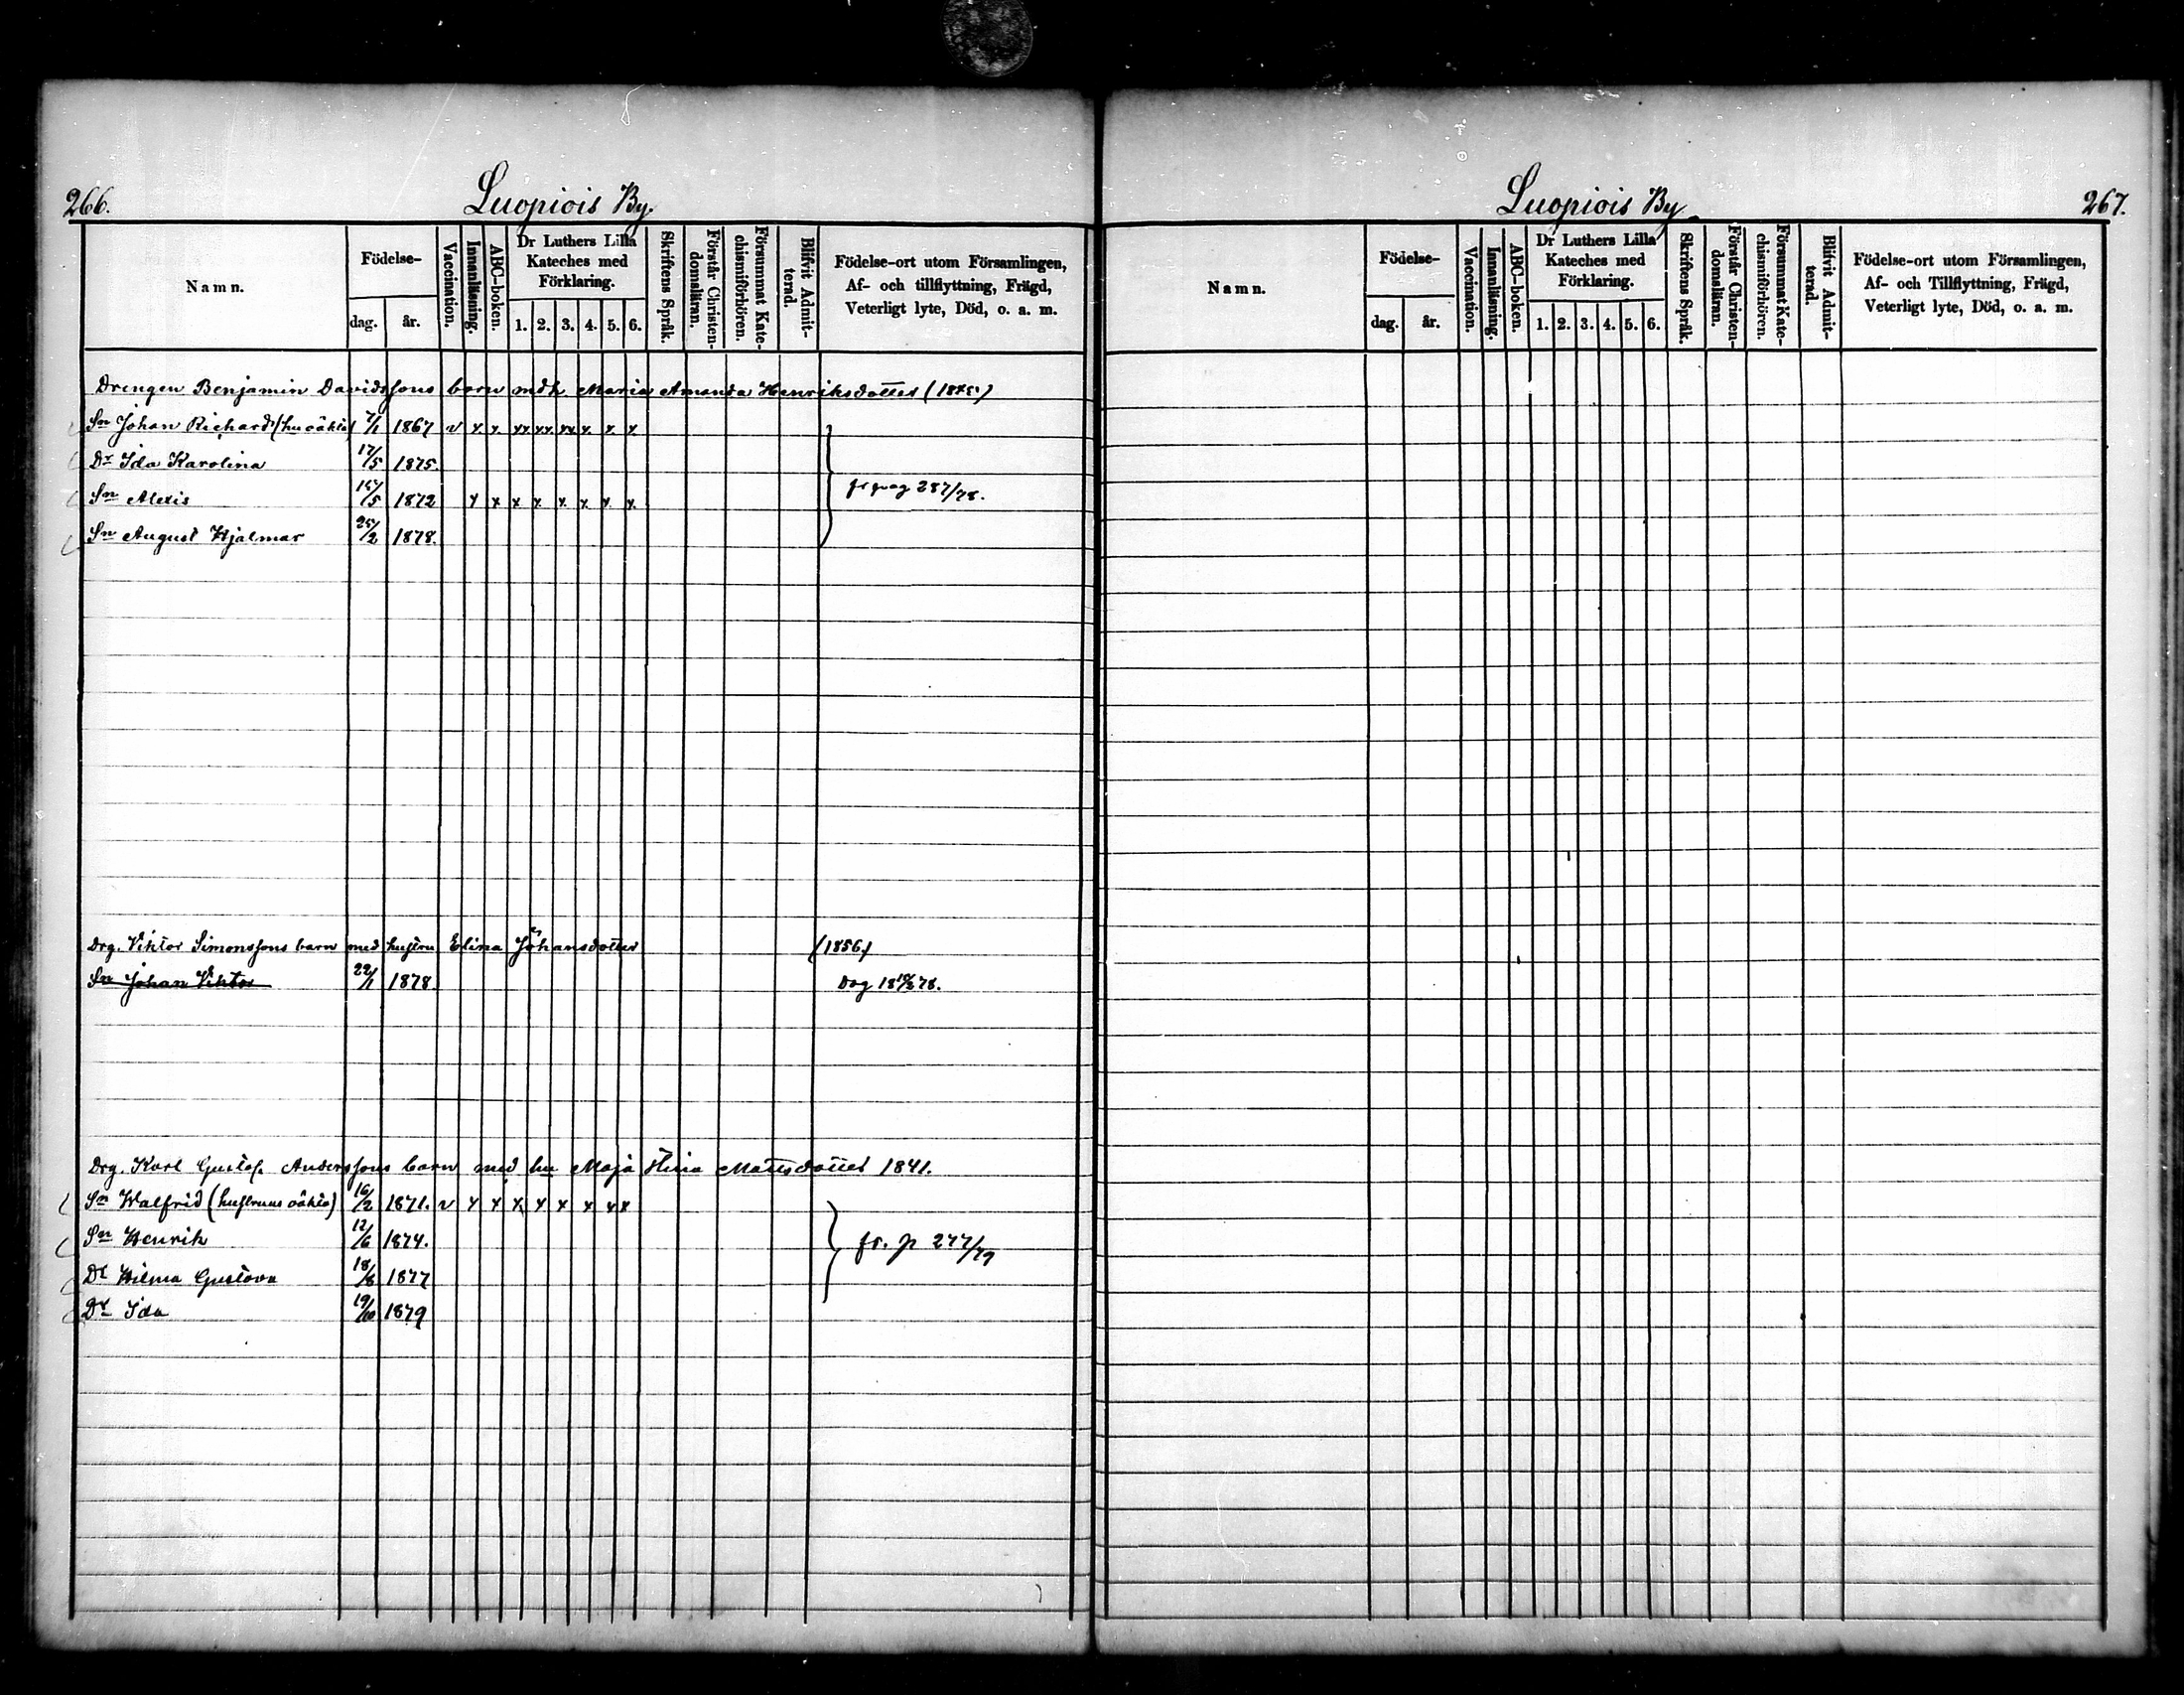 266.
Luopiois By.
Namn.
Födelse-
dag.
år.
Vaccination.
Innanläsning.
ABC-boken.
Dr Luthers Lilla Kateches med Förklaring.
1. 2. 3. 4. 5. 6.
Skriftens Språk.
Förstår Christendomsläran.
Försummat Katechismiförhören.
Blifvit Admitterad.
Födelse-ort utom Församlingen,
Af- och tillflyttning, Frägd,
Veterligt lyte, Död, o. a. m.
Drengen Benjamin Davidssons barn med h. Maria Amanda Henriksdotter
Sn Johan Richard (hu oäkta) 7/1 1867 v x x xx xx xx x x x
Dr Ida Karolina 17/5 1875.
Sn Alexis 15/5 1872 x x x x x x x x
fr pag 287/78.
Sn August Hjalmar 25/2 1878.
Drg. Viktor Simonssons barn med hustru Elina Johansdotter (1856)
Sn Johan Viktor 22/1 1878.
Drg. Karl Gustaf Anderssons barn med hu Maja Stina Mattsdotter 1841.
Sn Walfrid (hustruns oäkta) 16/2 1871. v x x x x x x x x
Sn Henrik 12/6 1874.
fr. p 277/79
Dr Wilma Gustava 18/8 1877
Dr Ida 19/10 1879
Luopiois By
267.
Namn.
Födelse-
dag.
år.
Vaccination.
Innanläsning.
ABC-boken.
Dr Luthers Lilla Kateches med Förklaring.
1. 2. 3. 4. 5. 6.
Skriftens Språk.
Förstår Christendomsläran.
Försummat Katechismiförhören.
Blifvit Admitterad.
Födelse-ort utom Församlingen,
Af- och Tillflyttning, Frägd,
Veterligt lyte, Död, o. a. m.